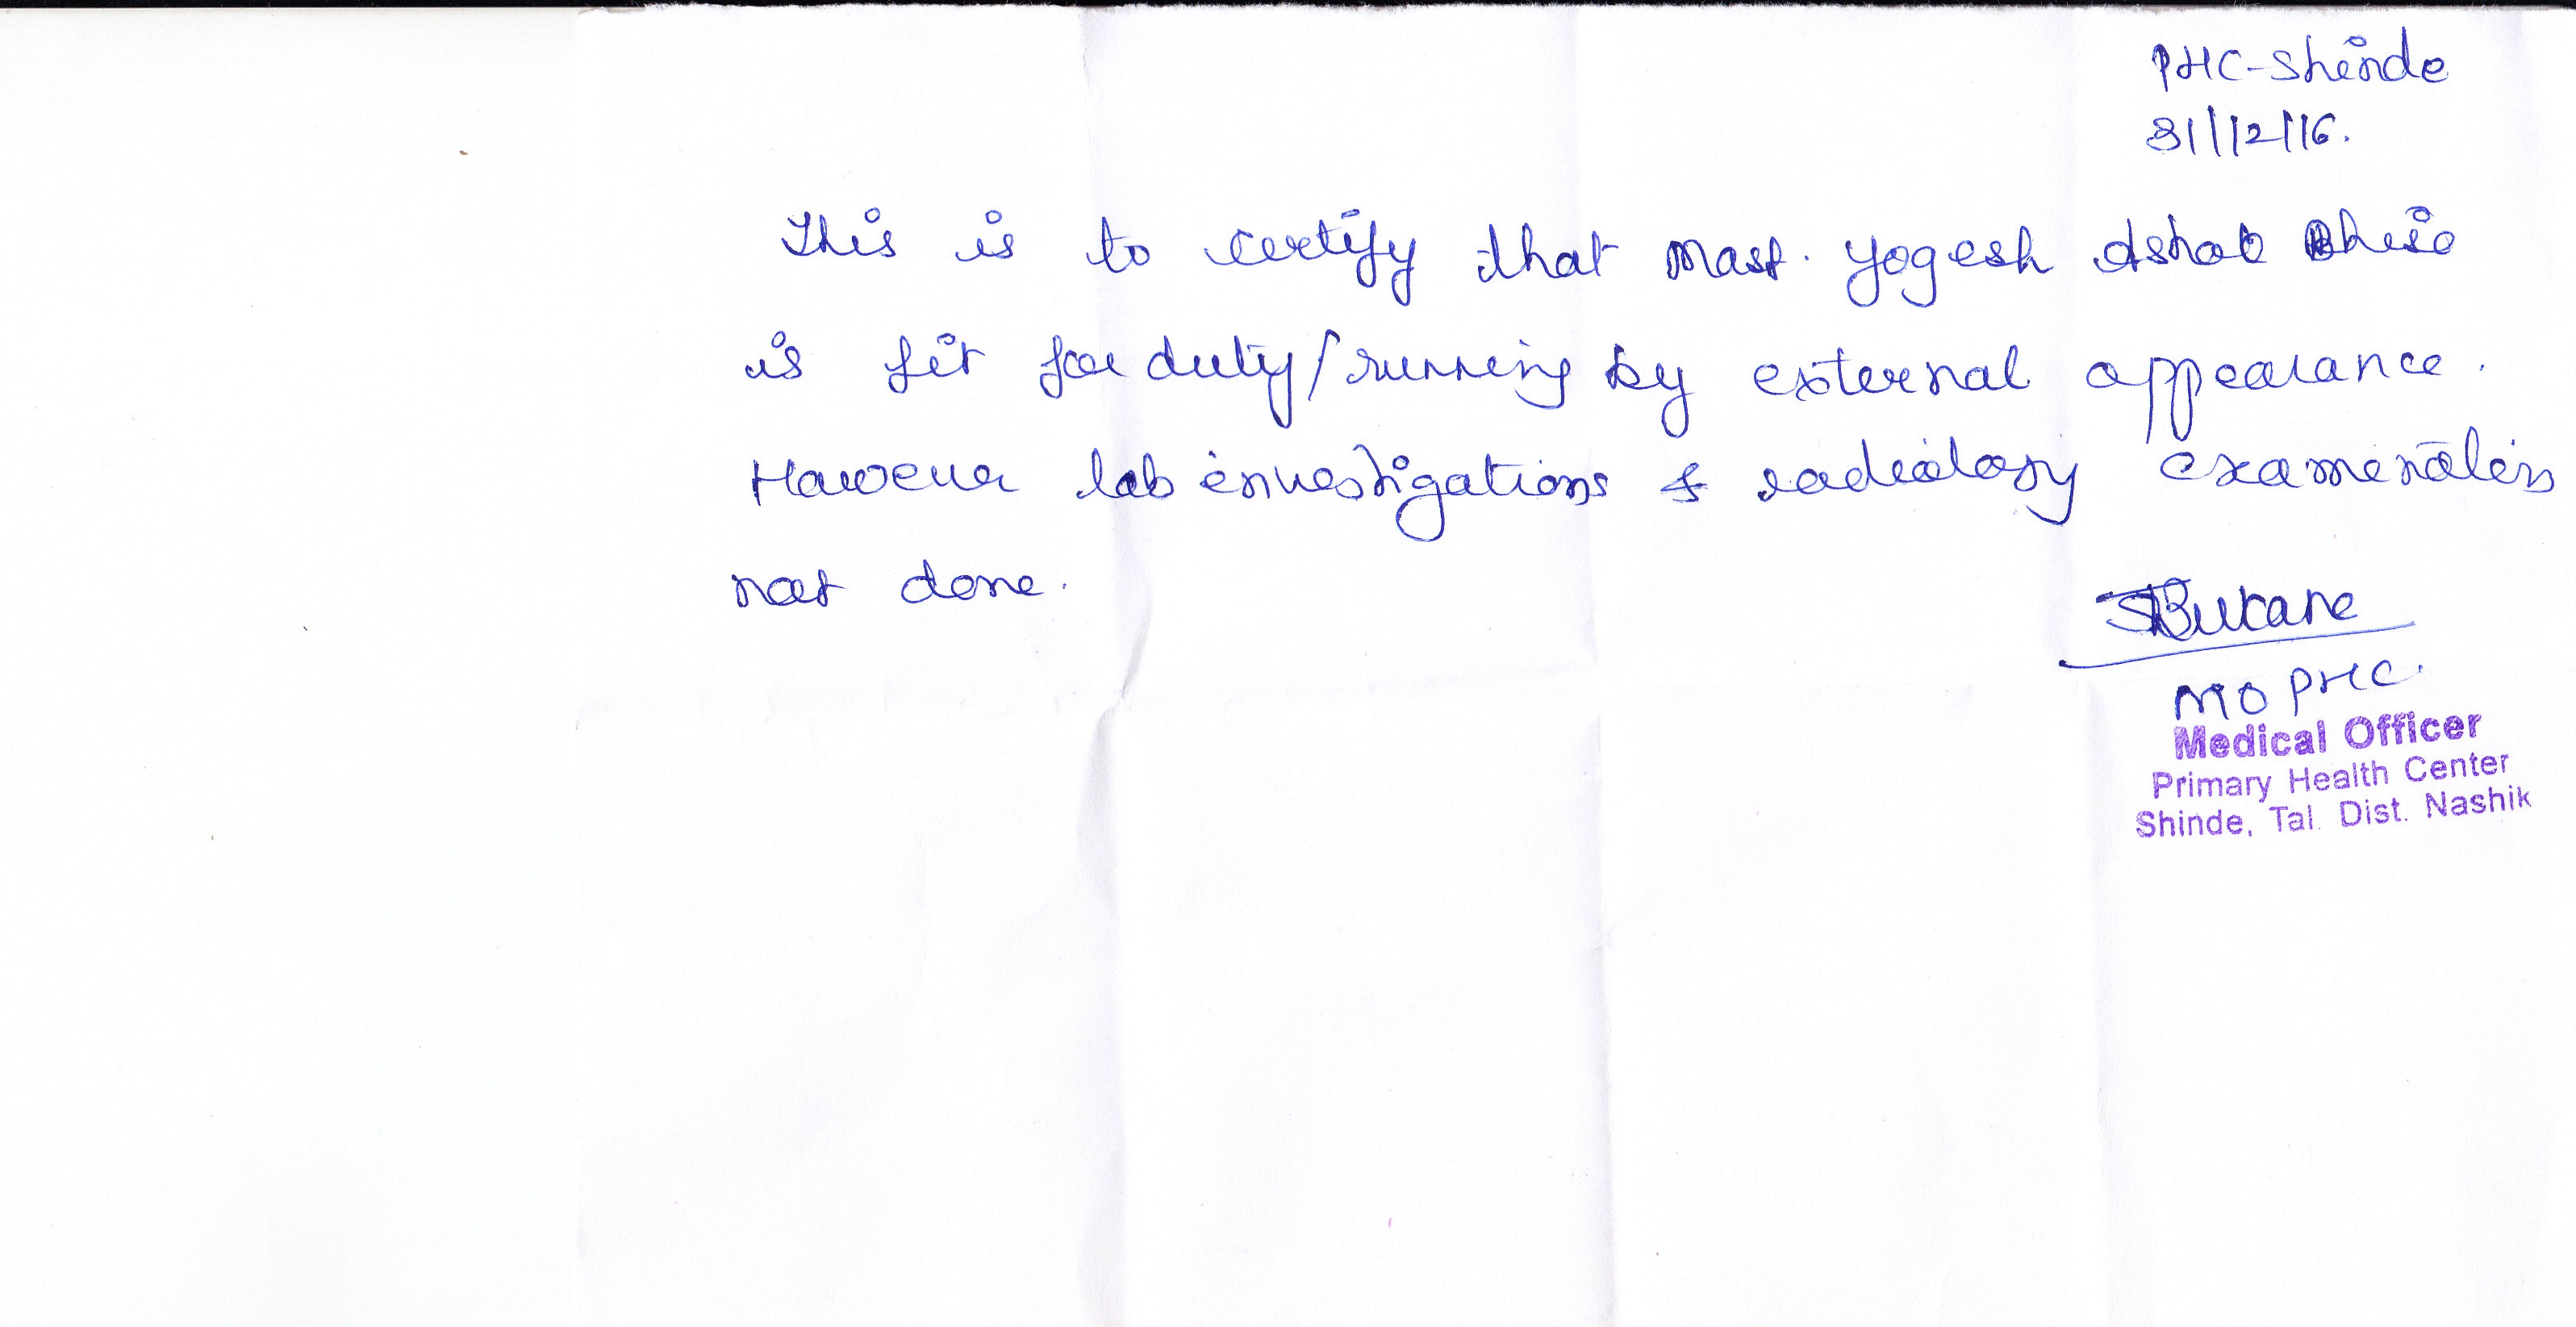 PHC-Shinde
31/12/16.
This is to certify that Mast. Yogesh Ashok Bhise
is fit for duty/running by external appearance.
However lab investigations & radiology examination
not done.
SBukane
MO PHC.
Medical Officer
Primary Health Center
Shinde, Tal. Dist. Nashik